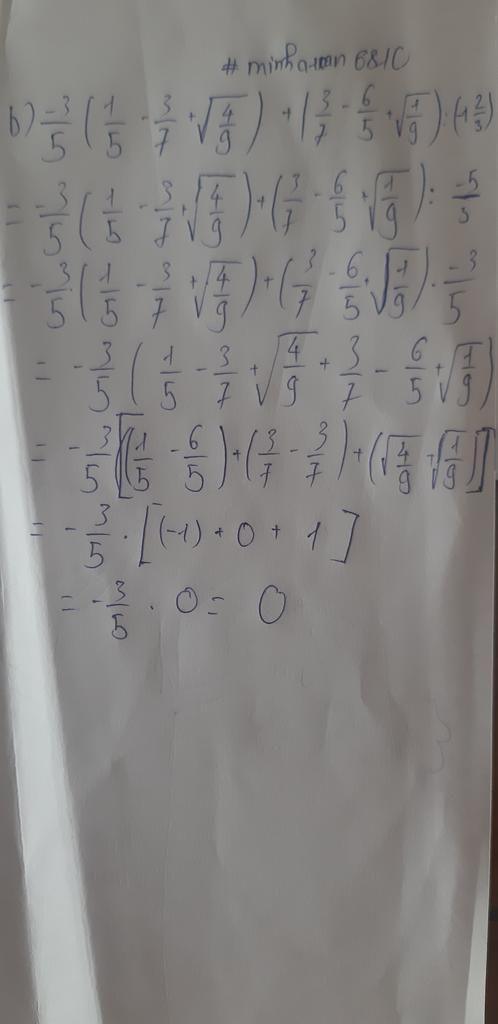 b) -3/5 (1/5 - 3/7 + √4/9) + (3/7 - 6/5 + √1/9) : (-1 2/3)
= -3/5 (1/5 - 3/7 + √4/9) + (3/7 - 6/5 + √1/9) : -5/3
= -3/5 (1/5 - 3/7 + √4/9) + (3/7 - 6/5 + √1/9) . -3/5
= -3/5 (1/5 - 3/7 + √4/9 + 3/7 - 6/5 + √1/9)
= -3/5 [(1/5 - 6/5) + (3/7 - 3/7) + (√4/9 + √1/9)]
= -3/5 . [(-1) + 0 + 1]
= -3/5 . 0 = 0